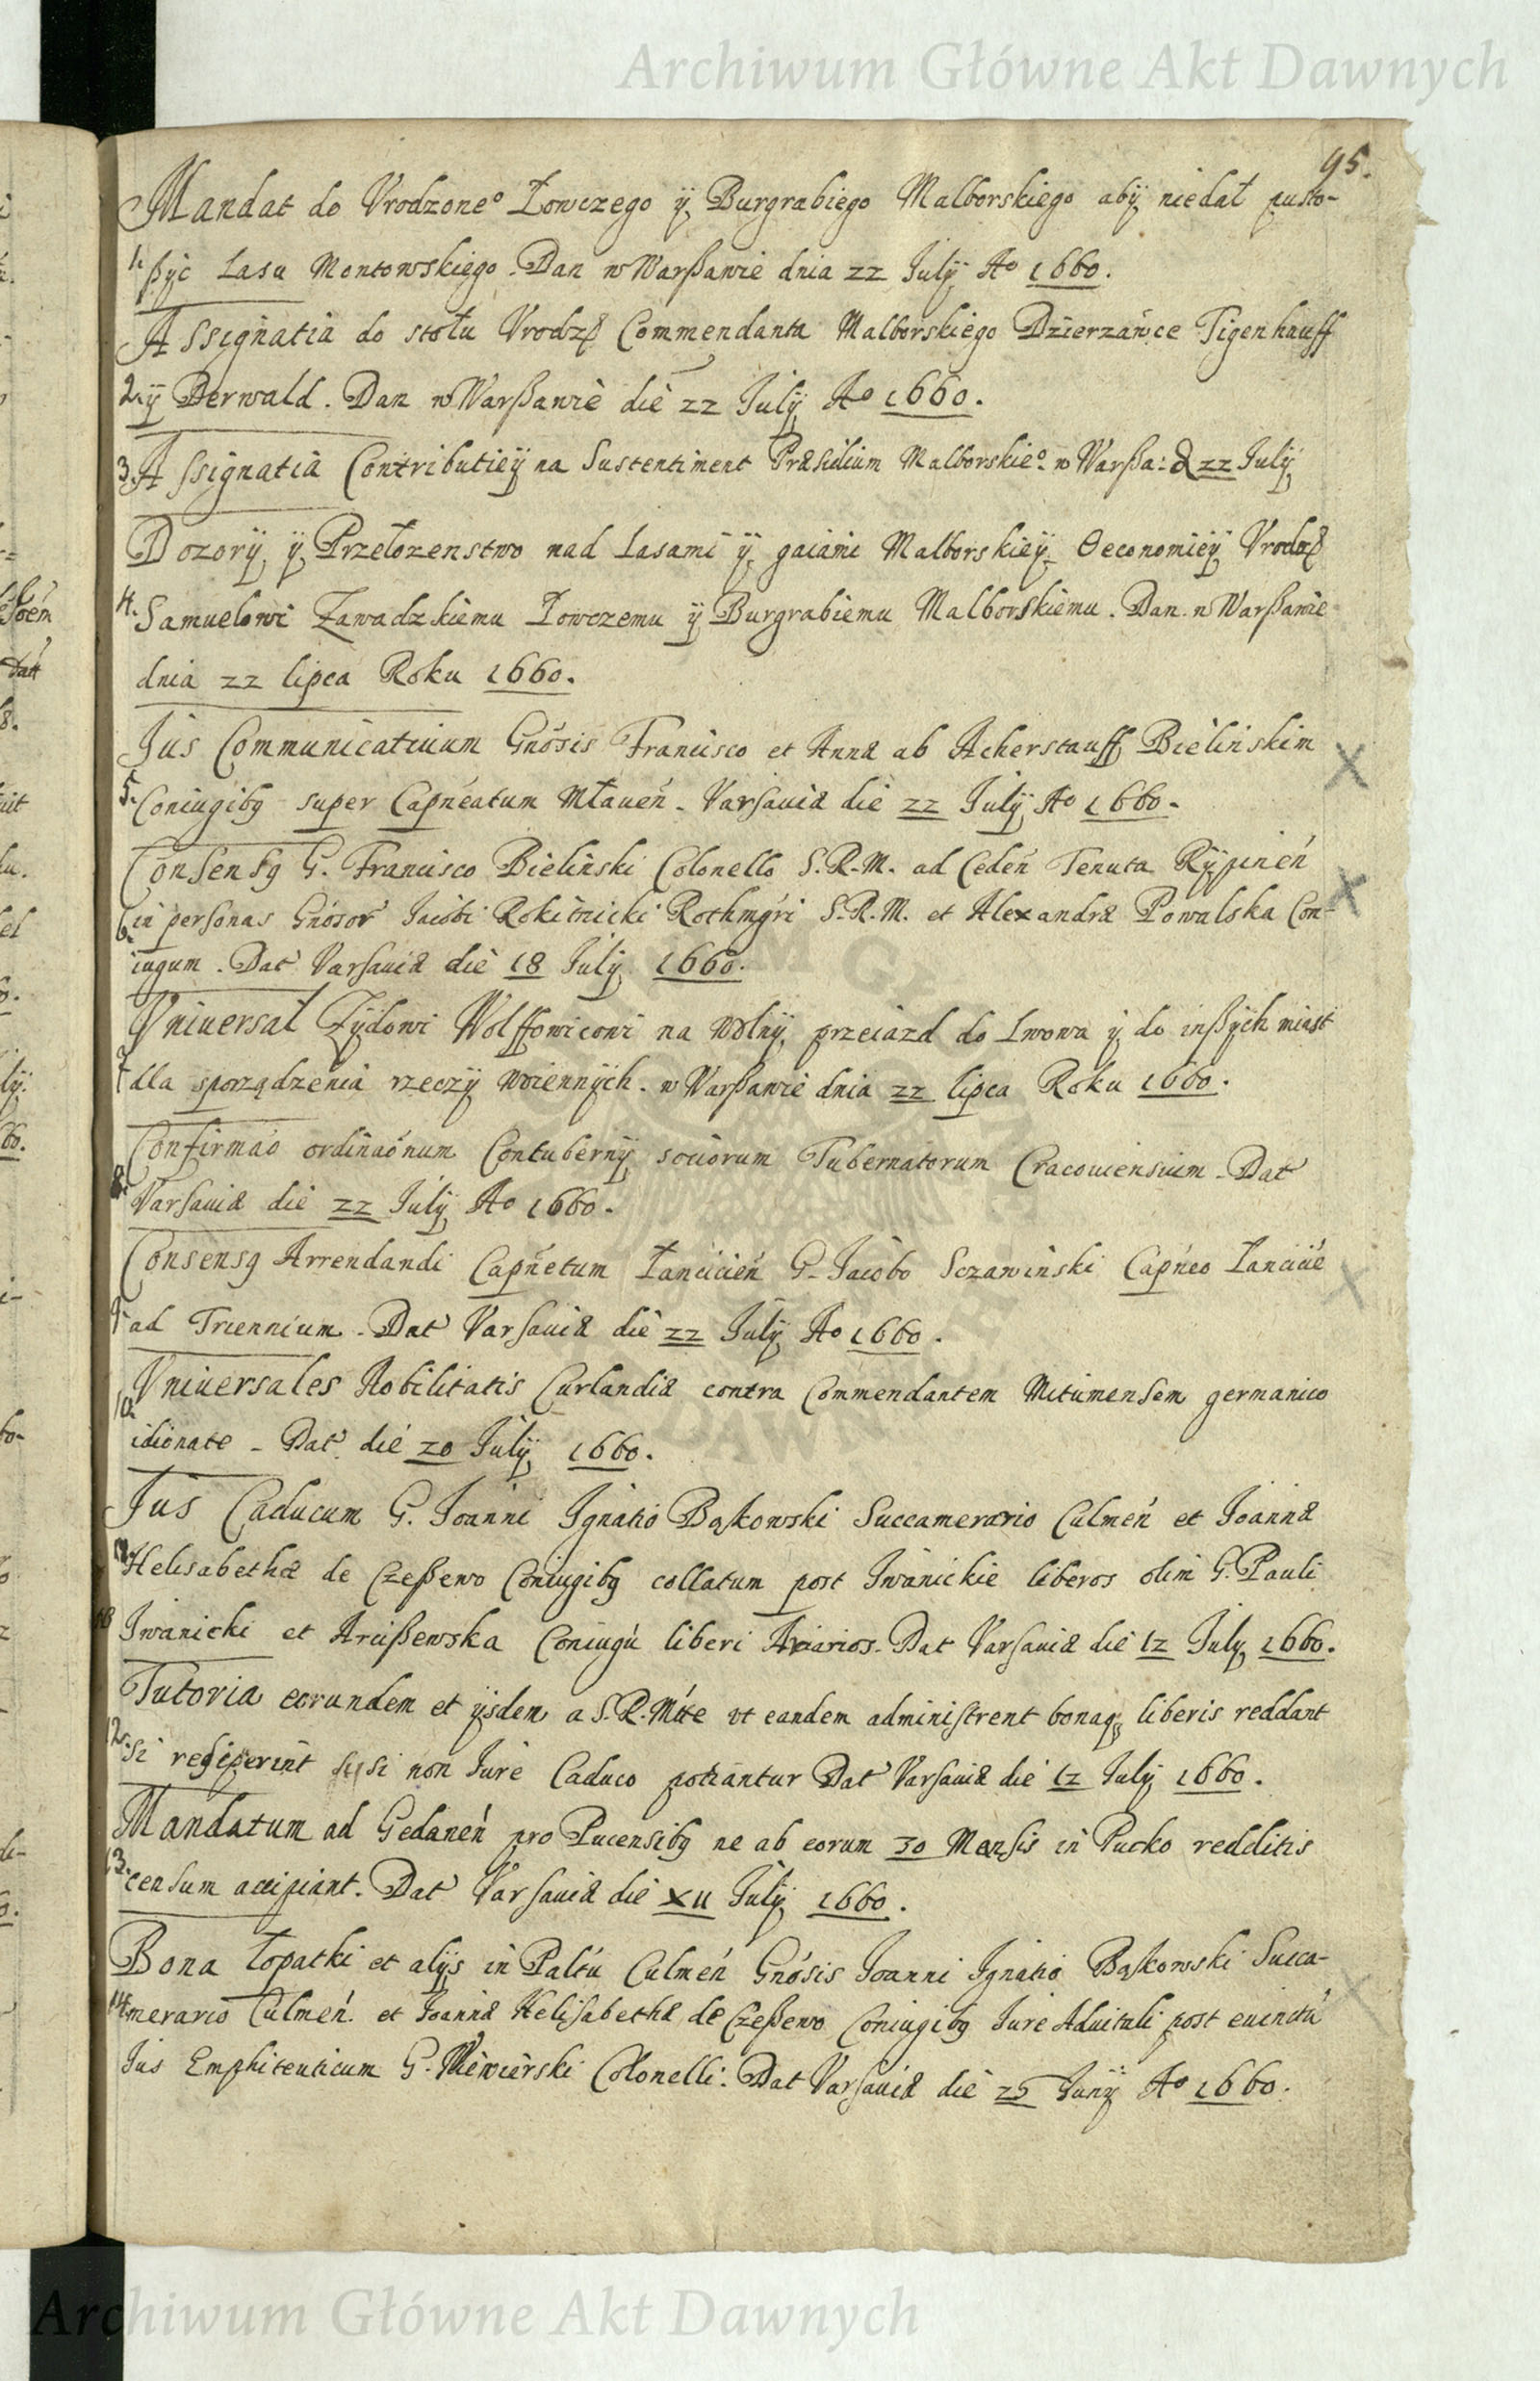 Archiwum Główne Akt Dawnych
95.
Mandat do Vrodzone° Łowczego ÿ Burgrabiego Malborskiego abÿ niedał pusto-
1. ßÿc Lasu Montowskiego. Dan w Warßawie dnia 22 Julÿ Ao 1660.
Assignatia do stołu Vrodz Commendanta Malborskiego Dzierzáwce Tigenhauff
2. ÿ Berwald. Dan w Warßawie die 22 Julÿ Ao 1660.
3. Assignatia Contributieÿ na Sustentiment Præsidium Malborskie° w Warßa: d 22 Julÿ
Dozorÿ ÿ Przełozenstwo nad Lasami ÿ gaiami Malborskieÿ Oeconomieÿ Vrodz
4. Samuelowi Zawadzkiemu Łowczemu ÿ Burgrabiemu Malborskiemu. Dan w Warßawie
dnia 22 lipca Roku 1660.
Jus Communicatiuum Gnósis Francisco et Annæ ab Ackerstauff Bielinskim
5. Coniugibꝰ super Capnéatum Młaueń. Varsauiæ die 22 Julÿ Ao 1660.
Consensꝰ G. Francisco Bielinski Colonello S.R.M. ad Cedeń Tenuta Rÿpineń
6. in personas Gnósor Jacobi Rokitnicki Rothmgri S.R.M. et Alexandræ Powalska Con-
iugum. Dat Varsauiæ die 18 Julÿ 1660.
Vniuersał Zÿdowi Wolffowicowi na wolnÿ przeiazd do Lwowa ÿ do inßÿch miast
7 dla sporządzenia rzeczÿ woiennÿch. w Warßawie dnia 22 lipca Roku 1660.
Confirmaó ordinaónum Contubernÿ sociorum Tubernatorum Cracouiensium. Dat
8. Varsauiæ die 22 Julÿ Ao 1660.
Consensꝰ Arrendandi Capńetum Łancicień G. Jacobo Sczawinski Capńeo Łancicié
9. ad Triennium. Dat Varsauiæ die 22 Julÿ Ao 1660.
Vniuersales Nobilitatis Curlandiæ contra Commendantem Mitumensem germanico
10. idionate - Dat die 20 Julÿ 1660.
Jus Caducum G. Joanni Ignatio Bąkowski Succamerario Culmeń et Joannæ
Helisabethæ de Czeßewo Coniugibꝰ collatum post Iwanickie liberos olim G. Pauli
Iwanicki et Arcißewska Coniugú liberi Ariarios. Dat Varsauiæ die 12 Julÿ 1660.
Tutoria eorundem et ÿsdem a S.R.Mtte vt eandem administrent bonaqꝫ liberis reddant
12. si resiperint si non Jure Caduco potiantur Dat Varsauiæ die 12 Julÿ 1660.
Mandatum ad Gedaneń pro Pucensibꝰ ne ab eorum 30 Mansis in Pucko redditis
13. censum accipiant. Dat Varsauiæ die XII Julÿ 1660.
Bona Łopatki et alÿs in Palťu Culmeń Gnósis Joanni Ignatio Bąkowski Succa-
14. merario Culmeń et Joannæ Helisabethæ de Czeßewo Coniugibꝰ Jure Aduitali post euinctú
Jus Emphiteuticum G. Colonelli. Dat Varsauiæ die 25 Junÿ Ao 1660.
Archiwum Główne Akt Dawnych